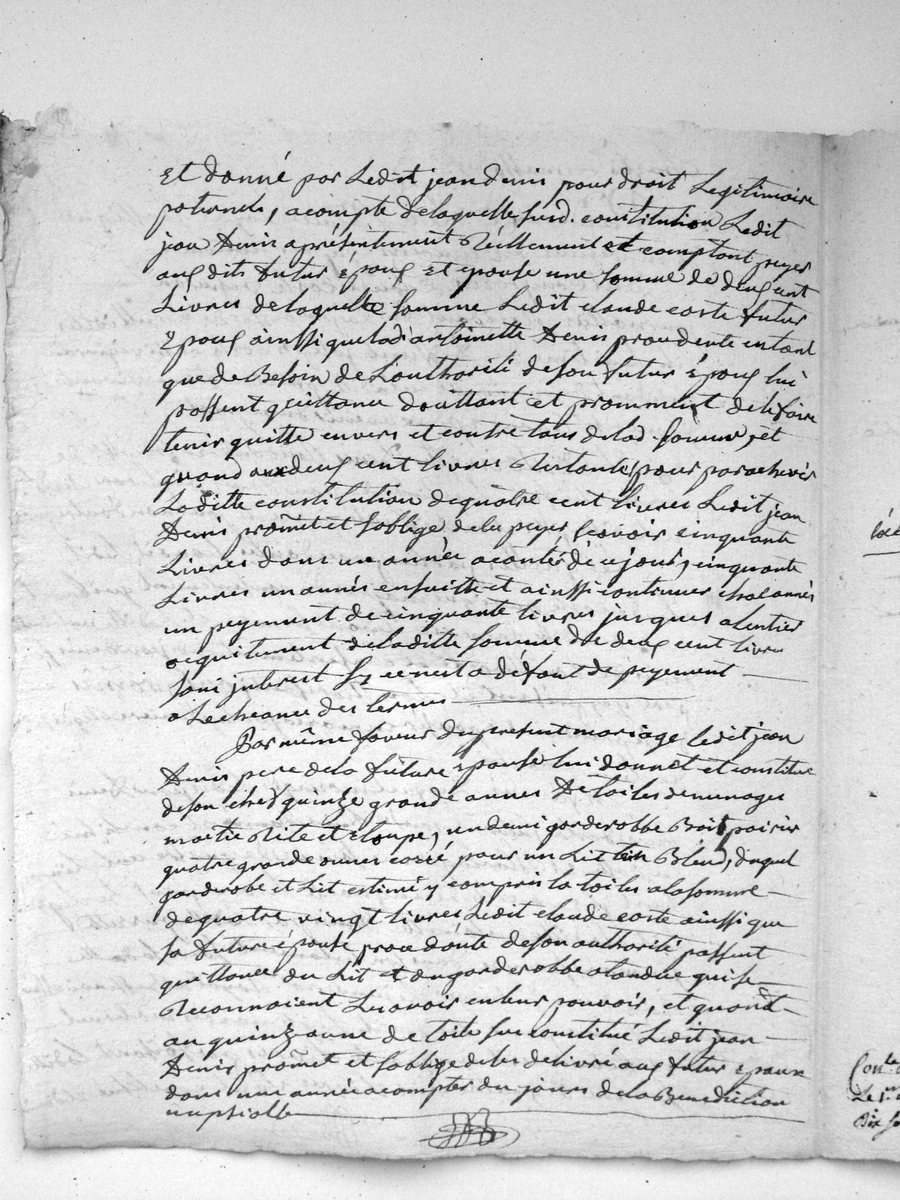 Et donné par Ledit jean denis pour droit Legitimaire
paternel, acompte de laquelle susd. constitution Ledit
jean Denis a présentement Réellement et comptant payer
aux dits futur Epoux Et epouse une somme de deux cent
Livres de laquelle somme Ledit claude coste futur
Epoux ainssi que lad. antoinette Denis procedente entant
que de Besoin de L'authorité de son futur Epoux lui
passent quittance et promment de le faire
tenir quitte envers et contre tous de lad. somme, et
quand aux deux cent livres Restantes, pour parachever
La ditte constitution de quatre cent livres Ledit jean
Denis promet et soblige de les payer scavoir cinquante
Livres dans un année a conter de ce jour, cinquante
Livres un année ensuitte et ainssi continuer chac année
un payement de cinquante livres jusques a lentier
acquitement de la ditte somme de deux cent livres
sans jnterest sy ce nest a défaut de payement
a Lecheance des termes
Par même faveur du present mariage ledit jean
Denis pere de la future epouse lui donnet et constitue
de son chef quinze grande aunes De toiles de menages
moetié Rite et Etoupe, un demi garderobbe Bois poirier
quatre grande aunes carré pour un Lit en Bleu, duquel
garderobe et Lit estimé y compris la toiles a la somme
de quatre vingt livres Ledit claude coste ainssi que
sa future épouse procedante de son authorité passent
quittance du Lit et du garderobbe atandue quise
Reconnaient Les avoir en leur pouvoir, et quand
au quinze aune de toile sus constitué Ledit jean
Denis promet et soblige de les delivré aux futur epoux
dans une année a compter du jours de la Benediction
nuptialle
Con.
Le 1.
Dix